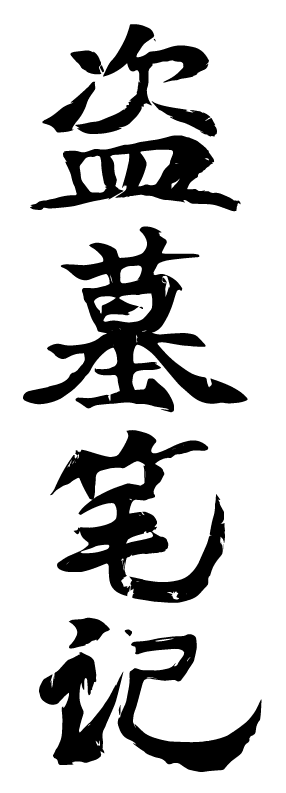 盗墓笔记